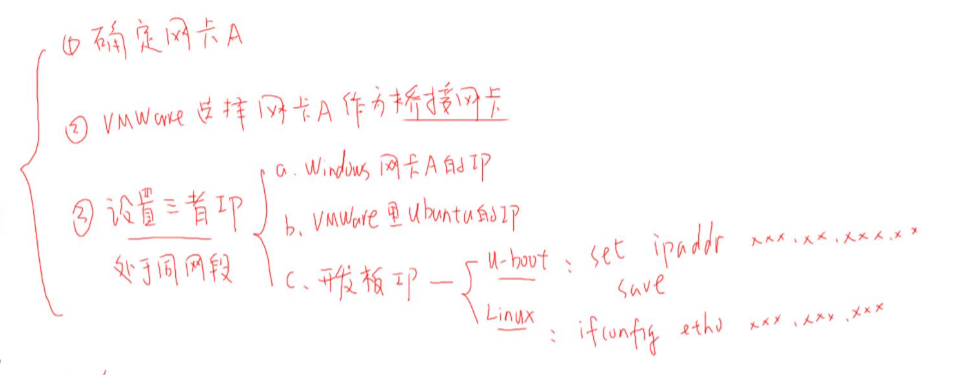 ① 确定网卡A
② VMWare 选择网卡A作为桥接网卡
③ 设置三者IP
处于同网段
a. Windows 网卡A的IP
b. VMWare里Ubuntu的IP
c. 开发板IP
U-boot : set ipaddr xxx.xx.xxx.xx
save
Linux : ifconfig eth0 xxx.xxx.xxx